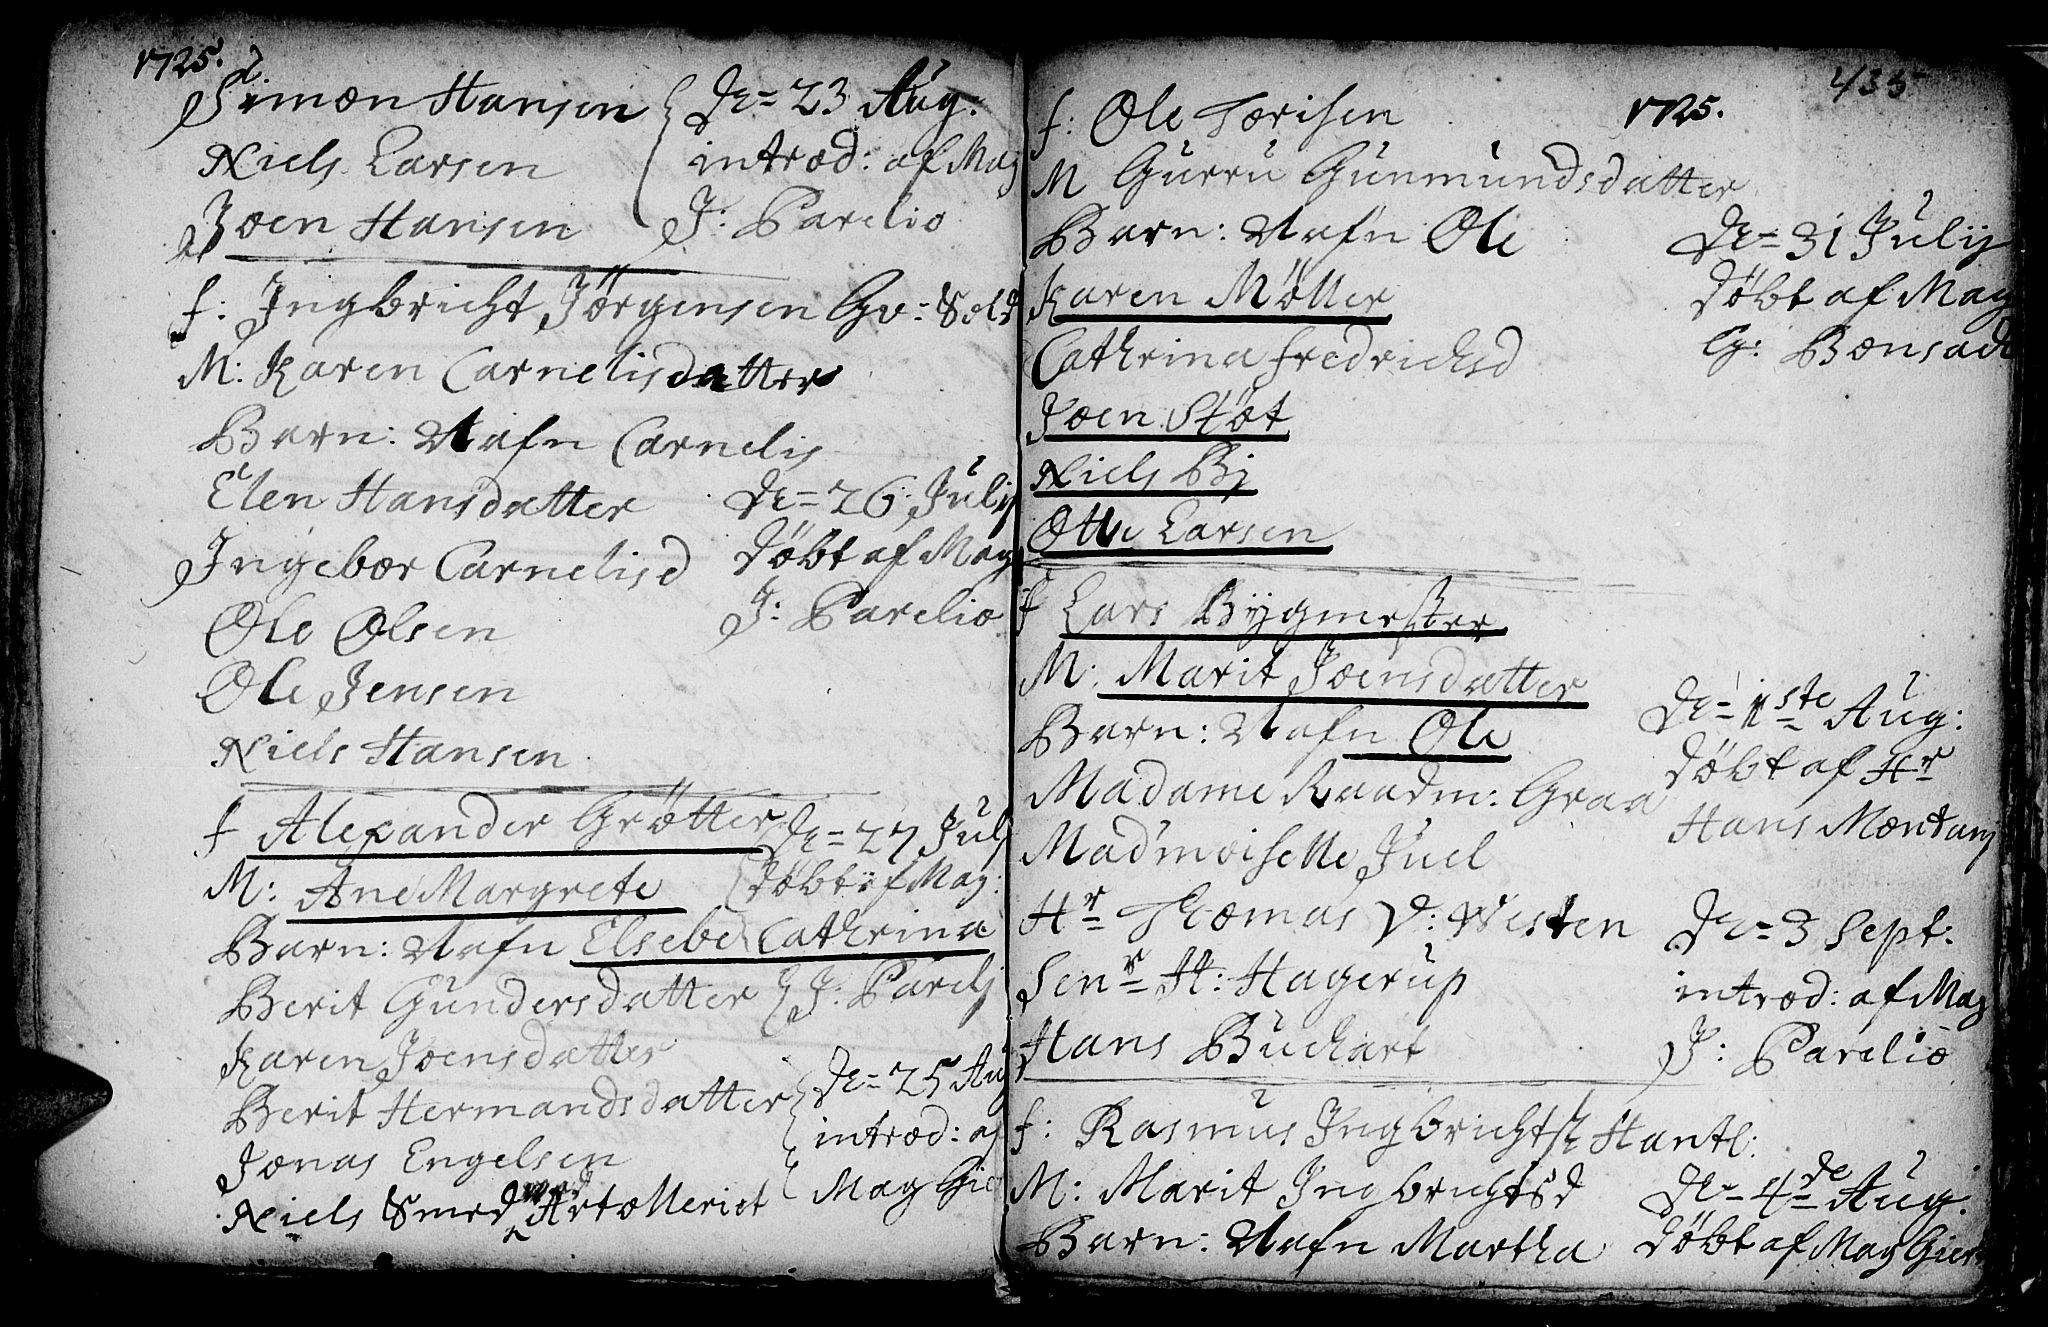 1725.
Simon Hansen
Niels Larsen
Joen Hansen
De= 23 Aug:
introd: af Mag
J: Parelio
f: Ingbricht Jörgensen Gv: Sold
M: Karen Carnelisdatter
Barn: Nafn Carnelis
Elen Hansdatter
Ingebor Carnelisd
Ole Olsen
Ole Jensen
Niels Hansen
De= 26 Julij
döbt af Mag
J: Parelio
f Alexander Grötter
M: Ane Margrete
Barn: Nafn Elsebe Cathrina
Berit Gundersdatter
Karen Joensdatter
Berit Hermandsdatter
Jonas Engelsen
Niels Smed ved Artolleriet
De= 27 Julj
döbt af Mag:
J: Parelj
De= 25 Aug
introd: af
Mag Gier
435
1725.
f: Ole Torisen
M Gurru Gunmundsdatter
Barn: Nafn Ole
Karen Möller
Cathrina fredrichsd
Joen Stöt
Niels Bj
Otte Larsen
De= 31 Julij
döbt af Mag
G: Bonsach
f Lars Bygmester
M: Marit Joensdatter
Barn: Nafn Ole
Madame Raadm: Graa
Madmoiselle Juel
Hr Thomas v: Westen
Senr H: Hagerup
Hans Buchart
De= 1ste Aug:
döbt af Hr
Hans Montang
De= 3 Sept:
introd: af Mag
J: Parelio
f: Rasmus Ingbrichts Hantl:
M: Marit Ingbrichtsd
Barn: Nafn Martha
De= 4de Aug.
döbt af Mag Gier